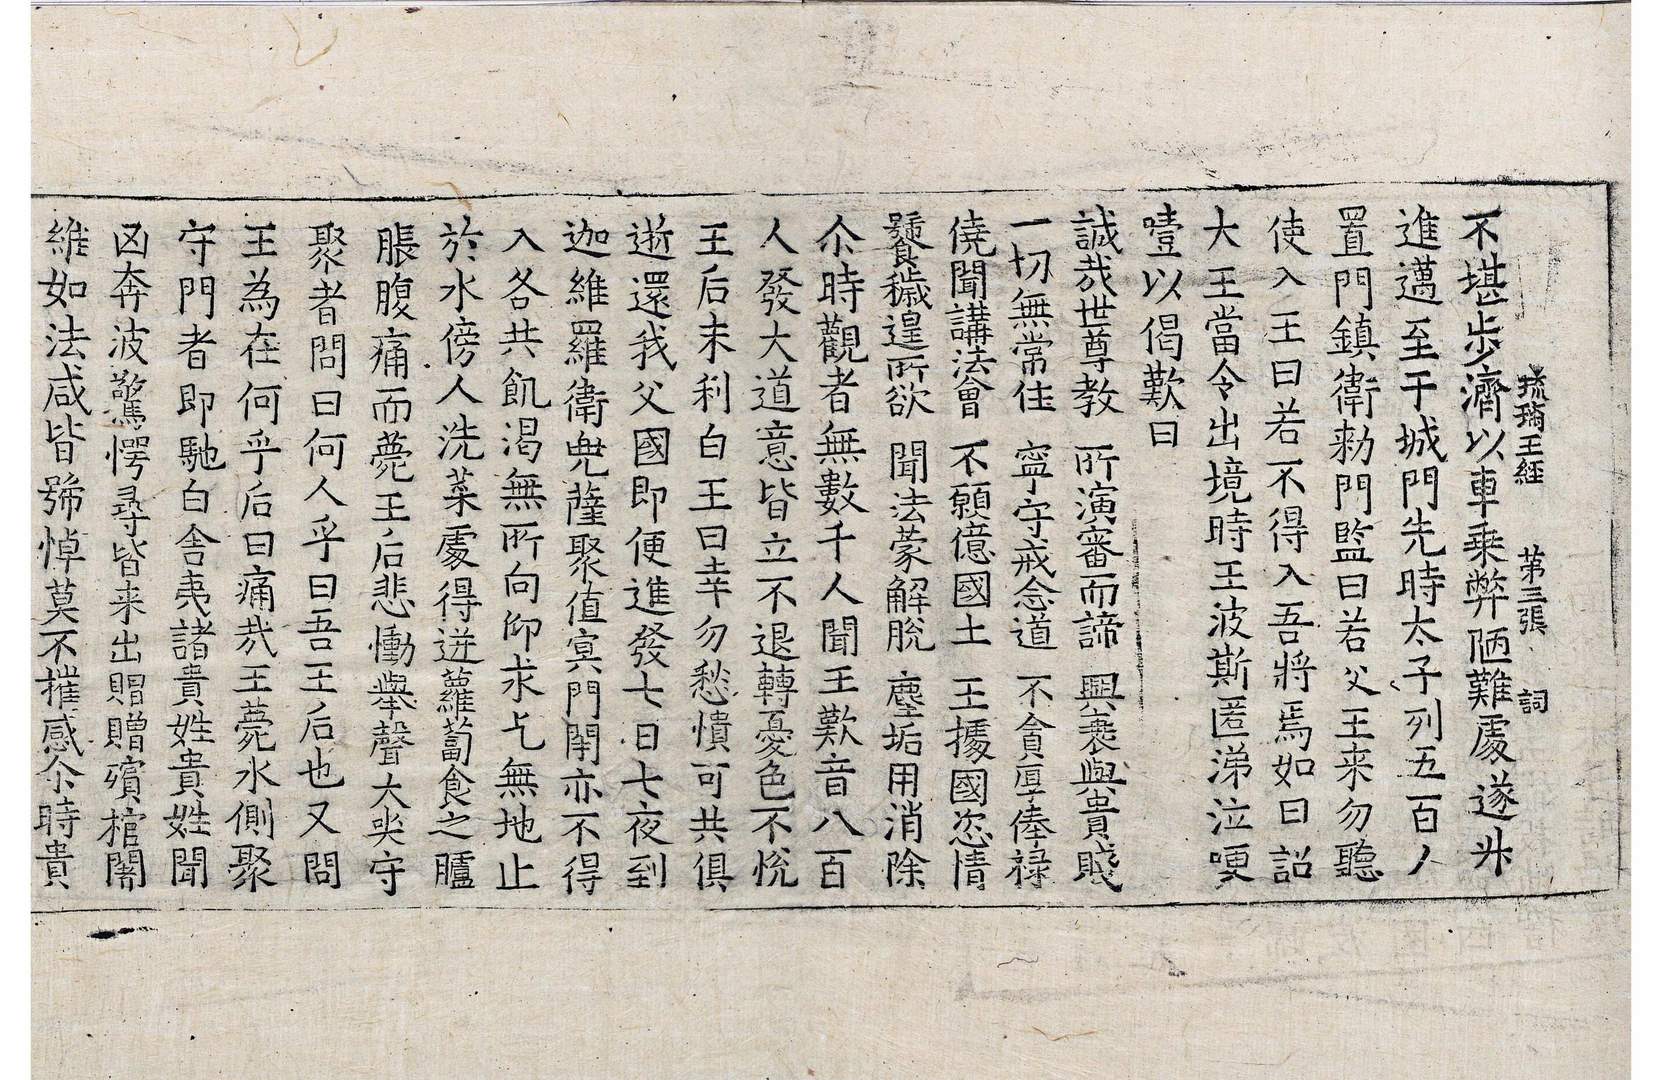 琉璃王經　第三張　詞
不堪步濟以車乘弊陋難處遂廾
進邁至于城門先時太子列五百人
置門鎮衛勑門監曰若父王来勿聽
使入王曰若不得入吾將焉如曰詔
大王當令出境時王波斯匿涕泣哽
噎以偈歎曰
誠哉世尊教　所演審而諦　興衰與貴賤
一切無常住　寧守戒念道　不貪厚俸禄
僥聞講法會　不願億國土　王據國恣情
饕餮穢遑所欲　聞法蒙解脫　塵垢用消除
尒時觀者無數千人聞王歎音八百
人發大道意皆立不退轉憂色不恱
王后末利白王曰幸勿愁憒可共俱
逝還我父國即便進發七日七夜到
迦維羅衛舭薩聚值㝠門閉亦不得
入各共飢渴無所向仰求乞無地止
於水傍人洗菜處得迸蘿蔔食之臚
脹腹痛而薨王后悲慟舉聲大哭守
聚者問曰何人乎曰吾王后也又問
王為在何乎后曰痛㢤王薨水側聚
守門者即馳白舍夷諸貴姓貴姓聞
凶奔波驚愕尋皆来出賵贈殯棺闍
維如法咸皆號悼莫不摧感尒時貴